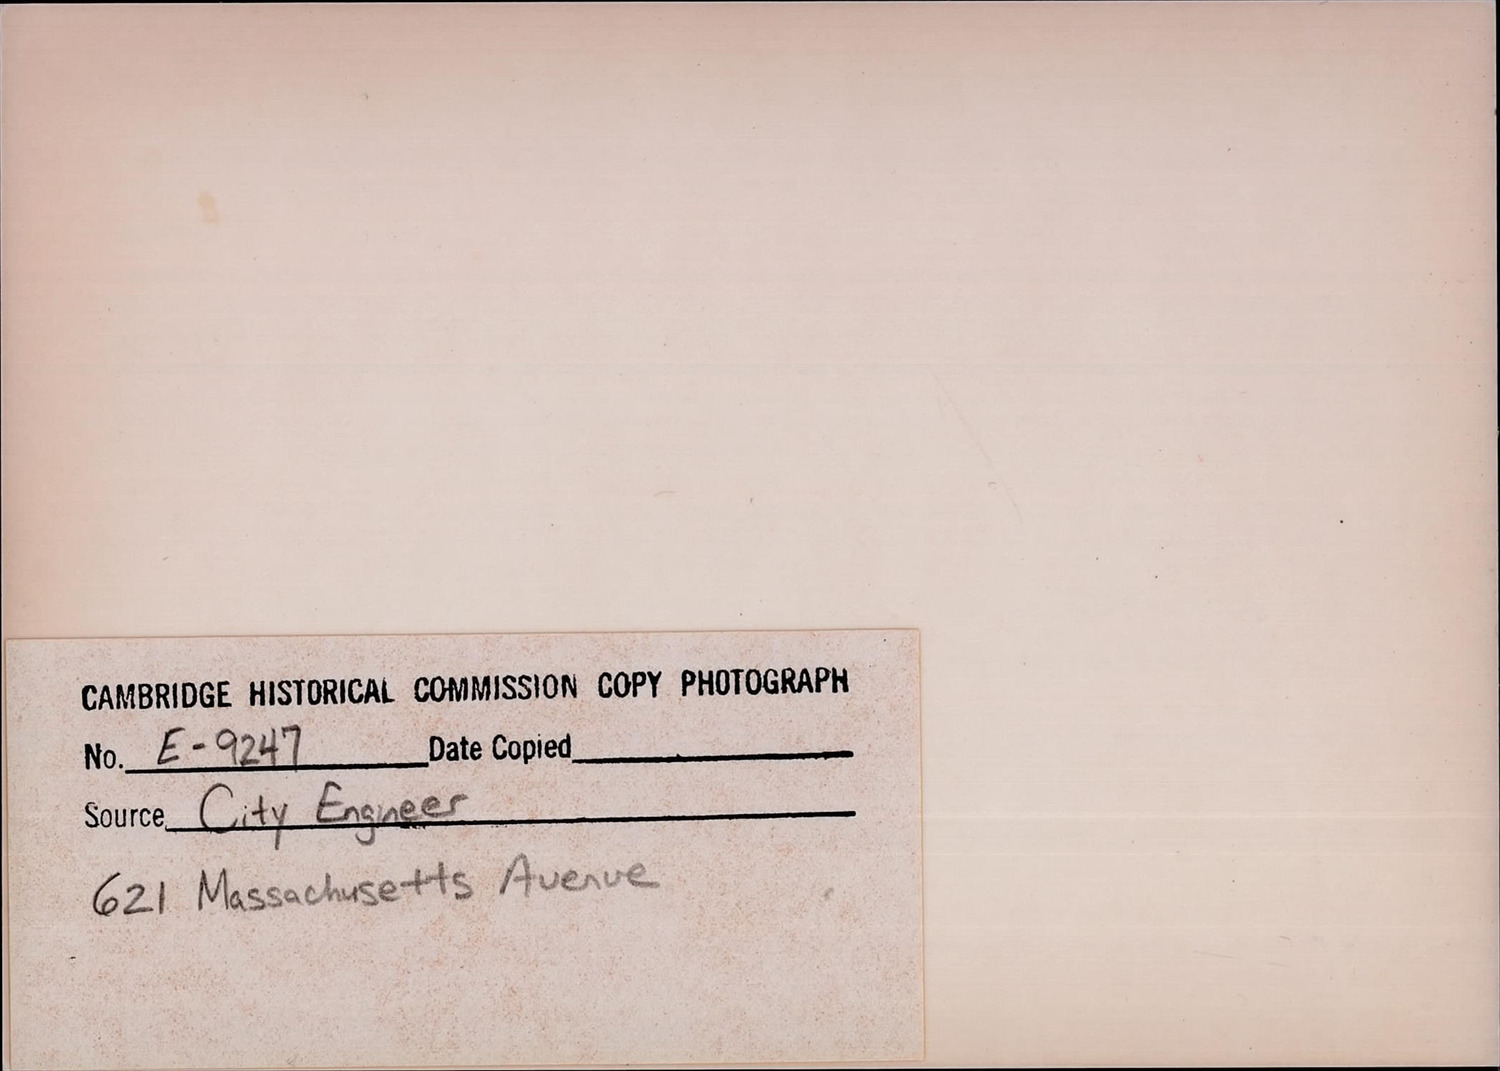 CAMBRIDGE HISTORICAL COMMISSION COPY PHOTOGRAPH
No. E-9247 Date Copied
Source City Engineer
621 Massachusetts Avenue